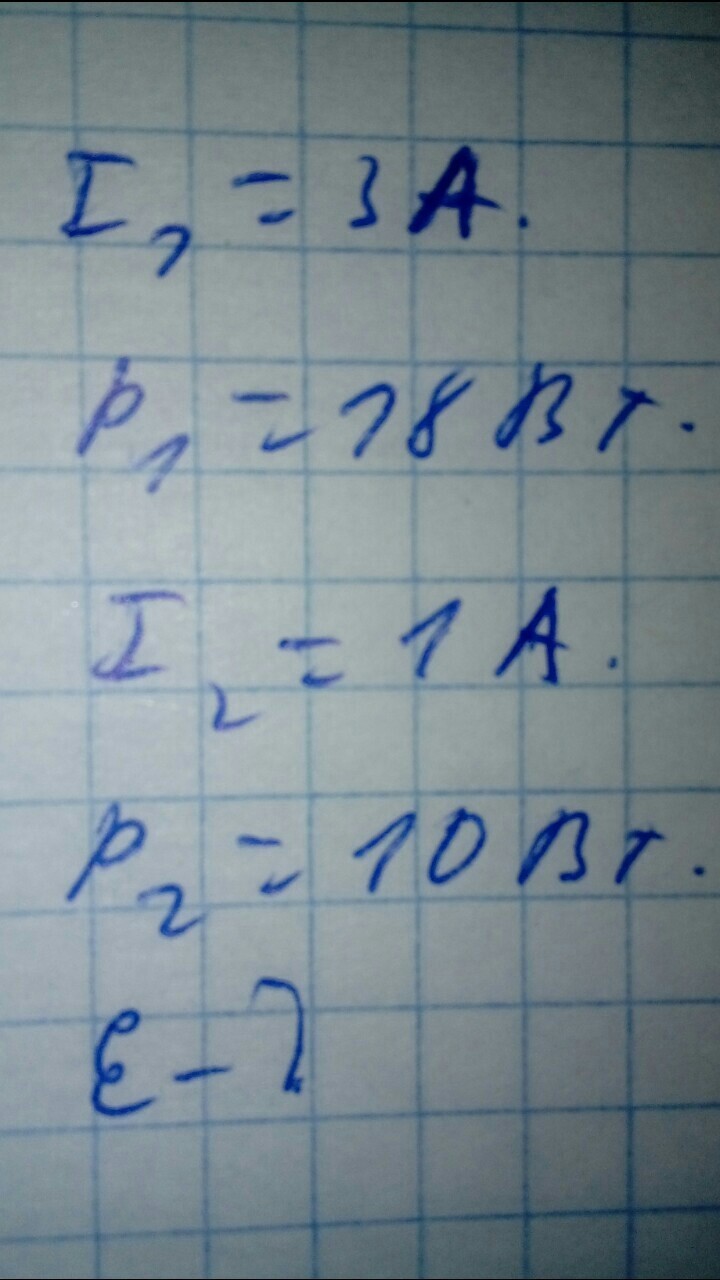 I₁ = 3 А.
P₁ = 18 Вт.
I₂ = 1 А.
P₂ = 10 Вт.
ℰ - ?